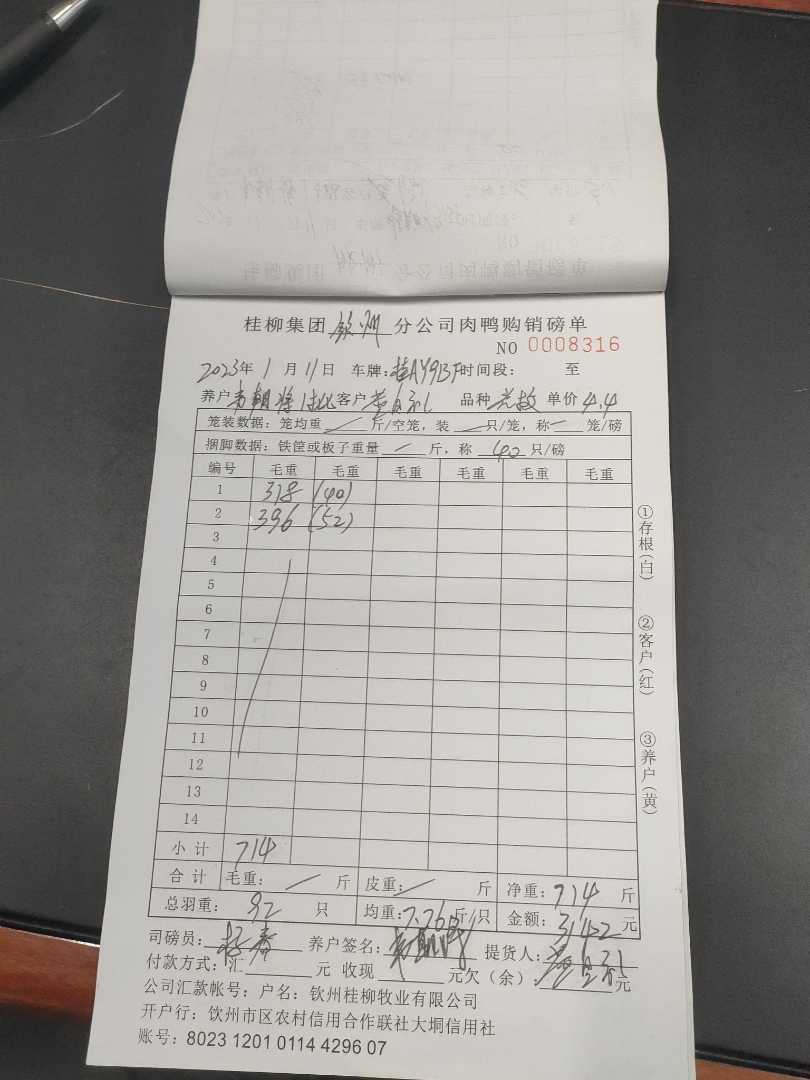 桂柳集团 钦州 分公司肉鸭购销磅单
NO 0008316
2023年 1 月 11 日 车牌: 时间段: 至
养户 客户 品种 单价 4.4
笼装数据: 笼均重 斤/空笼, 装 只/笼, 称 笼/磅
捆脚数据: 铁筐或板子重量 斤, 称 40 只/磅
编号 毛重 毛重 毛重 毛重 毛重 毛重
1 318 (40)
2 396 (52)
3
4
5
6
7
8
9
10
11
12
13
14
小计 714
合计 毛重: 斤 皮重: 斤 净重: 714 斤
总羽重: 92 只 均重: 7.76 斤/只 金额: 3142 元
司磅员: 养户签名: 提货人:
付款方式: 汇 元 收现 元欠(余): 元
公司汇款帐号: 户名: 钦州桂柳牧业有限公司
开户行: 钦州市区农村信用合作联社大垌信用社
账号: 8023 1201 0114 4296 07
①存根(白)
②客户(红)
③养户(黄)